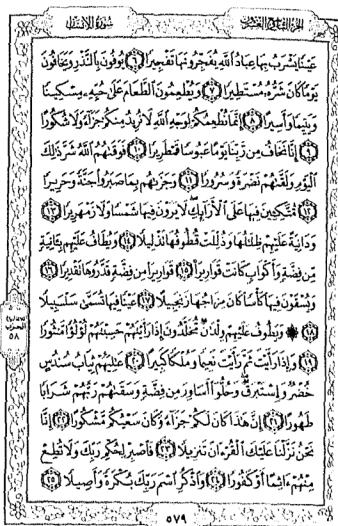 الجزء التاسع والعشرون سورة الإنسان
عَيْنًا يَشْرَبُ بِهَا عِبَادُ اللَّهِ يُفَجِّرُونَهَا تَفْجِيرًا ٦ يُوفُونَ بِالنَّذْرِ وَيَخَافُونَ
يَوْمًا كَانَ شَرُّهُ مُسْتَطِيرًا ٧ وَيُطْعِمُونَ الطَّعَامَ عَلَى حُبِّهِ مِسْكِينًا
وَيَتِيمًا وَأَسِيرًا ٨ إِنَّمَا نُطْعِمُكُمْ لِوَجْهِ اللَّهِ لَا نُرِيدُ مِنكُمْ جَزَاءً وَلَا شُكُورًا
٩ إِنَّا نَخَافُ مِن رَّبِّنَا يَوْمًا عَبُوسًا قَمْطَرِيرًا ١٠ فَوَقَاهُمُ اللَّهُ شَرَّ ذَلِكَ
الْيَوْمِ وَلَقَّاهُمْ نَضْرَةً وَسُرُورًا ١١ وَجَزَاهُم بِمَا صَبَرُوا جَنَّةً وَحَرِيرًا
١٢ مُّتَّكِئِينَ فِيهَا عَلَى الْأَرَائِكِ لَا يَرَوْنَ فِيهَا شَمْسًا وَلَا زَمْهَرِيرًا ١٣
وَدَانِيَةً عَلَيْهِمْ ظِلَالُهَا وَذُلِّلَتْ قُطُوفُهَا تَذْلِيلًا ١٤ وَيُطَافُ عَلَيْهِم بِآنِيَةٍ
مِّن فِضَّةٍ وَأَكْوَابٍ كَانَتْ قَوَارِيرَا ١٥ قَوَارِيرَا مِن فِضَّةٍ قَدَّرُوهَا تَقْدِيرًا ١٦
وَيُسْقَوْنَ فِيهَا كَأْسًا كَانَ مِزَاجُهَا زَنجَبِيلًا ١٧ عَيْنًا فِيهَا تُسَمَّى سَلْسَبِيلًا
١٨ ۞ وَيَطُوفُ عَلَيْهِمْ وِلْدَانٌ مُّخَلَّدُونَ إِذَا رَأَيْتَهُمْ حَسِبْتَهُمْ لُؤْلُؤًا مَّنثُورًا
١٩ وَإِذَا رَأَيْتَ ثَمَّ رَأَيْتَ نَعِيمًا وَمُلْكًا كَبِيرًا ٢٠ عَالِيَهُمْ ثِيَابُ سُندُسٍ
خُضْرٌ وَإِسْتَبْرَقٌ وَحُلُّوا أَسَاوِرَ مِن فِضَّةٍ وَسَقَاهُمْ رَبُّهُمْ شَرَابًا
طَهُورًا ٢١ إِنَّ هَذَا كَانَ لَكُمْ جَزَاءً وَكَانَ سَعْيُكُم مَّشْكُورًا ٢٢ إِنَّا
نَحْنُ نَزَّلْنَا عَلَيْكَ الْقُرْآنَ تَنزِيلًا ٢٣ فَاصْبِرْ لِحُكْمِ رَبِّكَ وَلَا تُطِعْ
مِنْهُمْ آثِمًا أَوْ كَفُورًا ٢٤ وَاذْكُرِ اسْمَ رَبِّكَ بُكْرَةً وَأَصِيلًا ٢٥
الحزب
٥٨
٥٧٩